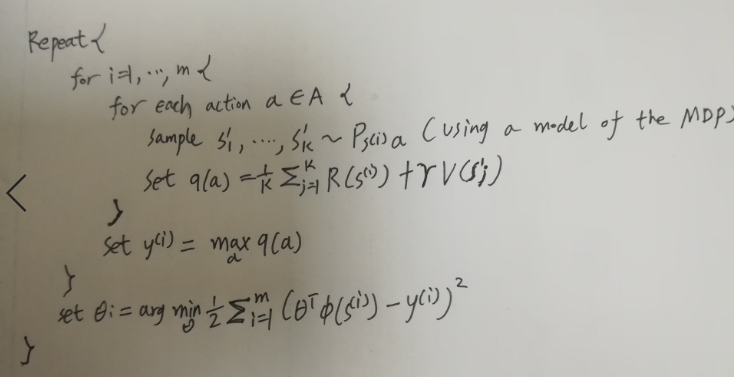 Repeat {
for i=1, ..., m {
for each action a ∈ A {
sample s'₁, ..., s'ₖ ~ Pₛ₍ᵢ₎ₐ (using a model of the MDP)
set q(a) = 1/K Σⱼ₌₁ᴷ R(s⁽ⁱ⁾) + γV(s'ⱼ)
}
set y⁽ⁱ⁾ = maxₐ q(a)
}
set θᵢ = arg min_θ 1/2 Σᵢ₌₁ᵐ (θᵀφ(s⁽ⁱ⁾) − y⁽ⁱ⁾)²
}